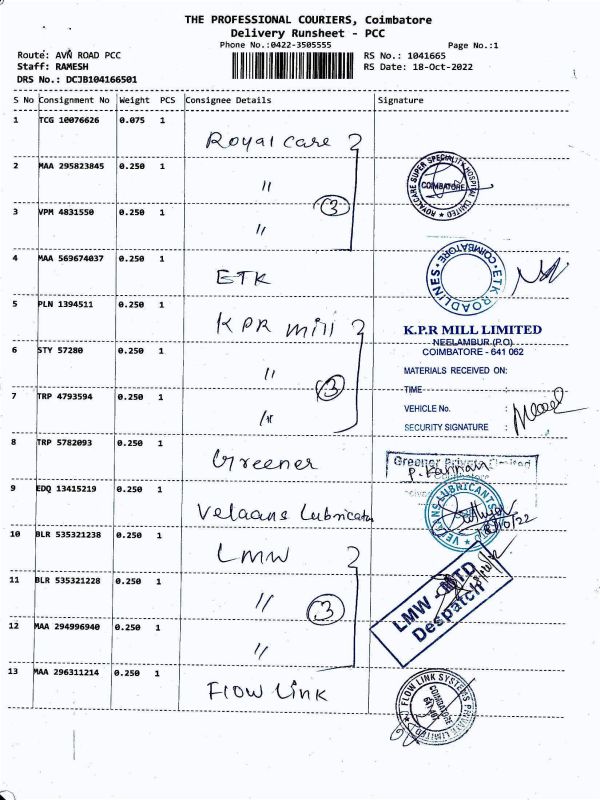 THE PROFESSIONAL COURIERS, Coimbatore
Delivery Runsheet - PCC
Phone No.:0422-3505555
Page No.:1
Route: AVN ROAD PCC
RS No.: 1041665
Staff: RAMESH
RS Date: 18-Oct-2022
DRS No.: DCJB104166501
S No Consignment No Weight PCS Consignee Details Signature
1 TCG 10076626 0.075 1
Royal care
2 MAA 295823845 0.250 1
"
3
ROYALCARE SUPER SPECIALITY HOSPITAL LIMITED
COIMBATORE
3 VPM 4831550 0.250 1
"
4 MAA 569674037 0.250 1
ETK
ETK ROADLINES
COIMBATORE
5 PLN 1394511 0.250 1
KPR mill
K.P.R MILL LIMITED
NEELAMBUR (P.O)
COIMBATORE - 641 062
6 STY 57280 0.250 1
"
3
MATERIALS RECEIVED ON:
TIME :
7 TRP 4793594 0.250 1
"
VEHICLE No. :
SECURITY SIGNATURE :
8 TRP 5782093 0.250 1
Greener
Greener Private Limited
P. Kannan
9 EDQ 13415219 0.250 1
Velaans Lubricats
VELAANS LUBRICANTS
10 BLR 535321238 0.250 1
LMW
11 BLR 535321228 0.250 1
"
3
LMW - MTD
Despatch
12 MAA 294996940 0.250 1
"
13 MAA 296311214 0.250 1
Flow Link
FLOW LINK SYSTEMS PRIVATE LIMITED
COIMBATORE